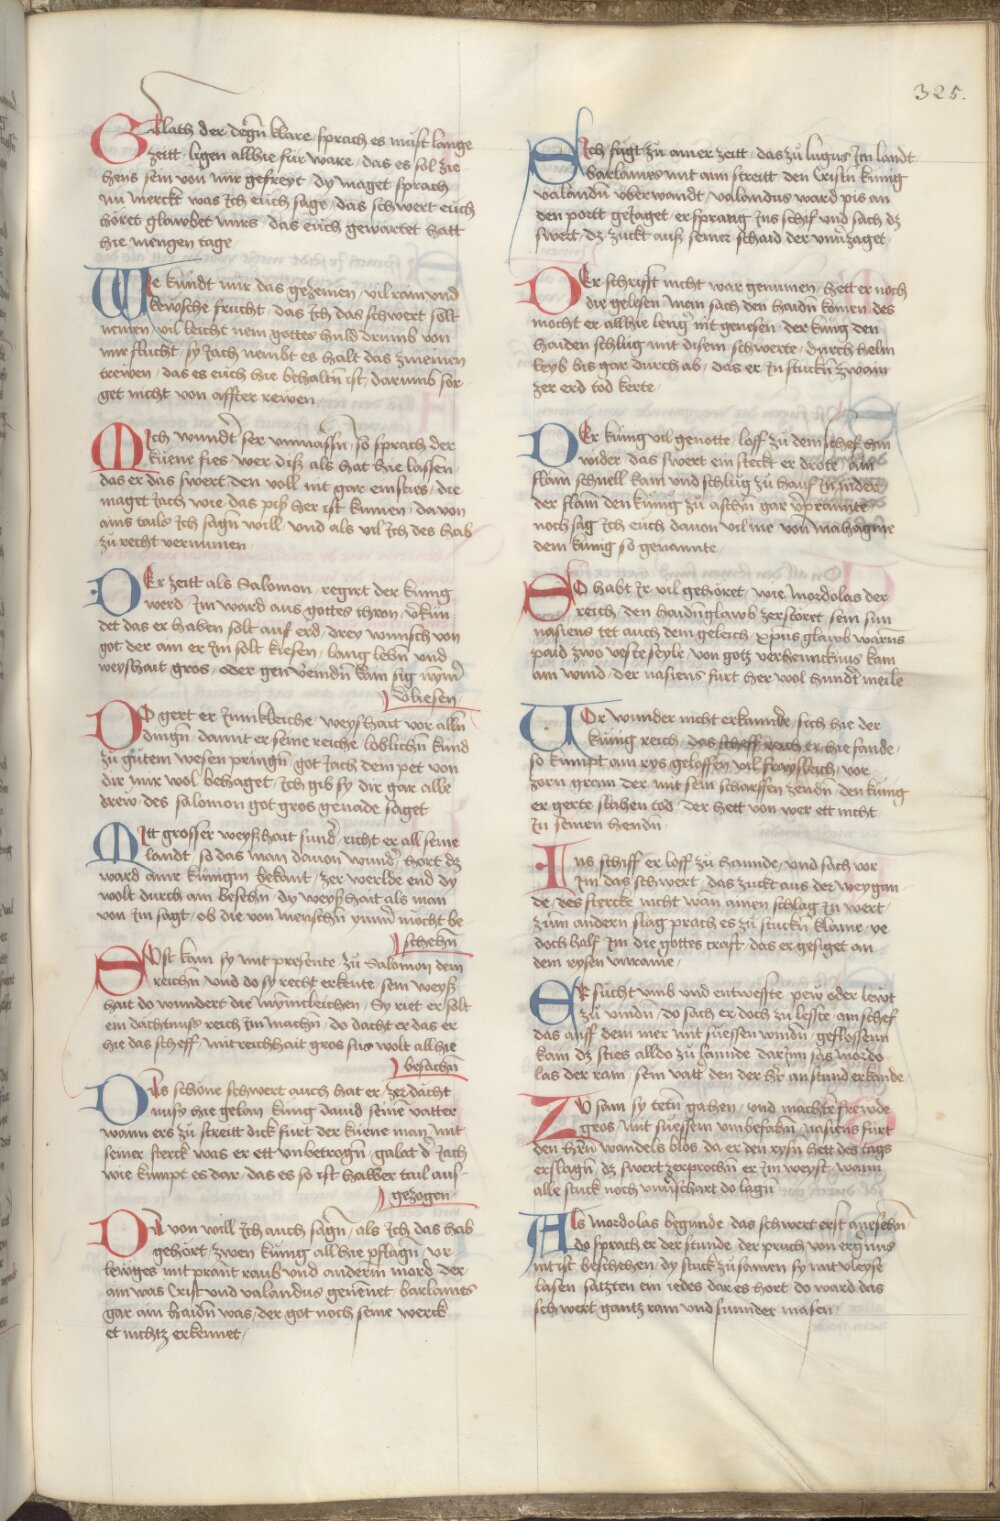 325.
Galath der degñ klare / sprach es müst lange
zeitt / ligen allhie für ware / das es sol zie
hens sein von mir gefreyt / dy maget sprach
nu merckt was Ich euch sage / das schwert euch
höret glawbet mirs / das euch gewartet hatt
hie mengen tage /
We kündt mir das gezemen / vil rain vnd
kewsche frücht / das Ich das schwert solt
nemen / vil leicht nem gottes huld drumb von
mir flucht / sy Iach nembt es halt das
trewen / das es euch hie behaltñ ist / darumb sor
get nicht von affter rewen /
Mich wundˀt ser vnmassñ / so sprach der
küene fies wer diß als hat hie lassen
das er das swert / den voll nit gar einsties / die
maget Iach wie das piß her ist kumen / da von
ains tails Ich sagñ will / vnd als vil Ich des hab
zu recht vernumen /
Der zeitt als Salomon / regirt der kunig
werd / Im ward aus gottes thron / vˀkün
det das er haben solt auf erd / drey wunsch von
got der ain er Im solt kiesen / lang lebñ vnd
weyshait gros / oder gen veindñ kain sig nymˀ
vˀliesen /
Do gert er Innikleiche / weyshait vor allñ
dingñ / damit er seine reiche / loblichñ kund
zu gutem wesen pringñ / got Iach dein pet von
dir mir wol behaget / Ich gib sy dir gar alle
drew / des salomon got gros genade saget
Mitt grosser weyßhait sundˀ / richt er all seine
landt / so das man dauon wundˀ / hort dz
ward ainr künigin bekant / zer werlde end dy
wolt durch ain besehñ / dy weyßhait als man
von Im sagt / ob die von menschñ ymmˀ möcht be
schehñ
Sust kam sy mit presente / zu Salomon dem
reichñ / vnd do sy recht erkente / sein weyß
hait do wundert die mynnicleichen / Sy riet er solt
ein dachtnuss reich Im machñ / do dacht er das er
hie das scheff / mit reichhait gros sus wolt allhie
besachñ
Dits schöne schwert auch hat er / zer dächt
nusß hie gelan / kunig dauid seine vatter
wann ers zu streitt dick fürt der küene man / mit
seiner sterck was er ett vnbetrogñ / galat dˀ Iach
wie kumpt es dar / das es so ist halber tail aus
gezogen
Da von will Ich auch sagñ / als Ich das hab
gehört / zwen künig all hie pflagñ / vr
lewges mit prant raub vnd anderm mord / der
ain was Crist vnd valandus genennet / barlames
gar ain haidñ was / der got noch seine werck
et nichtz erkennet /
Sich fügt zu ainer zeitt / das zu lugus Im landt
barlames mit aim streitt / den Cristñ künig
valandñ vberwandt / valandus ward pis an
den portt geIaget / er sprang Ins schef vnd sach dz
swert / dz zuckt auß seiner schaid der vnuˀzaget
Der schrifft nicht war genumen / hett er noch
die gelesen / wan sach den haidñ komen / des
mocht er allhie lengˀ nit genesen / der künig den
haiden schlug mit disem schwerte / durch helm
leyb bis gar durch ab / das er In stuckñ zwain
zer erd tod kerte /
Der künig vil genotte / loff zu dem schef hin
wider / das swert ein steckt er drote / ain
flam schnell kam vnd schlug zu hauf In nider
der flam den künig zu aschñ gar vˀprannte
noch sag Ich euch dauon vil me / von mahagine
dem künig so genannte
So habt Ir vil gehöret / wie mordolas der
reich / den haidnˀglawb zerstöret / sein sun
nasiens tet auch dem geleich / xpus glawb warñs
paid zwo veste seyle / von gotz verhencknus kam
ain wind / der nasiens fürt her wol hundˀt meile
Vor wunder nicht erkannde / sich hie der
künig reich / das scheff reich er hie fande /
so kumpt ain rys geloffen vil frayssleich / vor
zorn gram der mit sein scharffen zendñ / den künig
er gerte slahen tod / der hett von wer ett nicht
In seinen hendñ
Ins schiff er loff zu hannde / vnd sach vor
Im das schwert / das zuckt aus der weygan
de / des stercke nicht wan ainen schlag In wert /
zum andern slag prach es zu stuckñ klaine / ye
doch half Im die gottes craft / das er gesiget an
dem rysen vnraine /
Er sücht vmb vnd entweste / pew oder lewt
zu vindñ / do sach er doch zu leste / ain schef
das auff dem mer mit süessen windñ / geflossenn
kam dz sties alldo zu lannde / darInn sas mordo
las der rain / sein vattˀ den der hˀr anstund erkande
Zusam sy tetñ gahen / vnd machte frewde
gros / mit süessem vmbefahñ / nasiens fürt
den hˀrñ wandels blos / da er den rysñ hett des tags
erslagñ / dz swert zerprochñ er Im weyst / wann
alle stuck noch vnuˀschart do lagñ
Als mordolas begunde / das schwert erst anesehñ
do sprach er der stunde / der pruch von erg nie
nit ist beschehen / dy stuck zusamen sy mit vleyse
lasen / satzten ein iedes dar es hort / do ward das
schwert gantz rain vnd sunnder masen